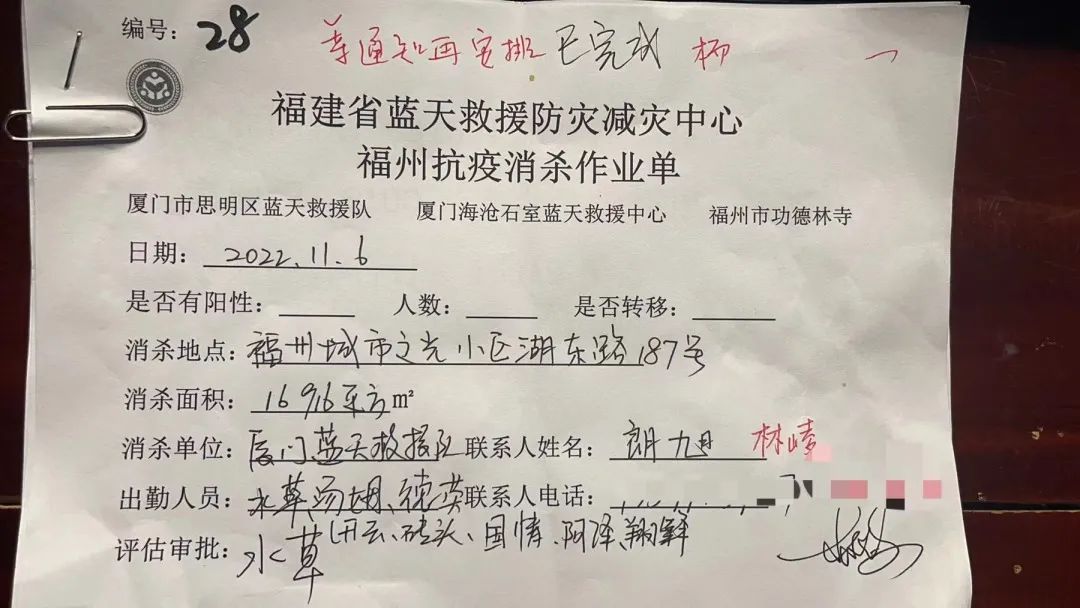 编号: 28
等通知再安排 已完成 杨
福建省蓝天救援防灾减灾中心
福州抗疫消杀作业单
厦门市思明区蓝天救援队 厦门海沧石室蓝天救援中心 福州市功德林寺
日期: 2022.11.6
是否有阳性: 人数: 是否转移:
消杀地点: 福州城市之光小区湖东路187号
消杀面积: 16916平方㎡
消杀单位: 厦门蓝天救援队 联系人姓名: 朗旭 林峰
出勤人员: 水草 汤姆、德英 联系人电话:
开云、砖头、国情、阿泽、翔鲜
评估审批: 水草